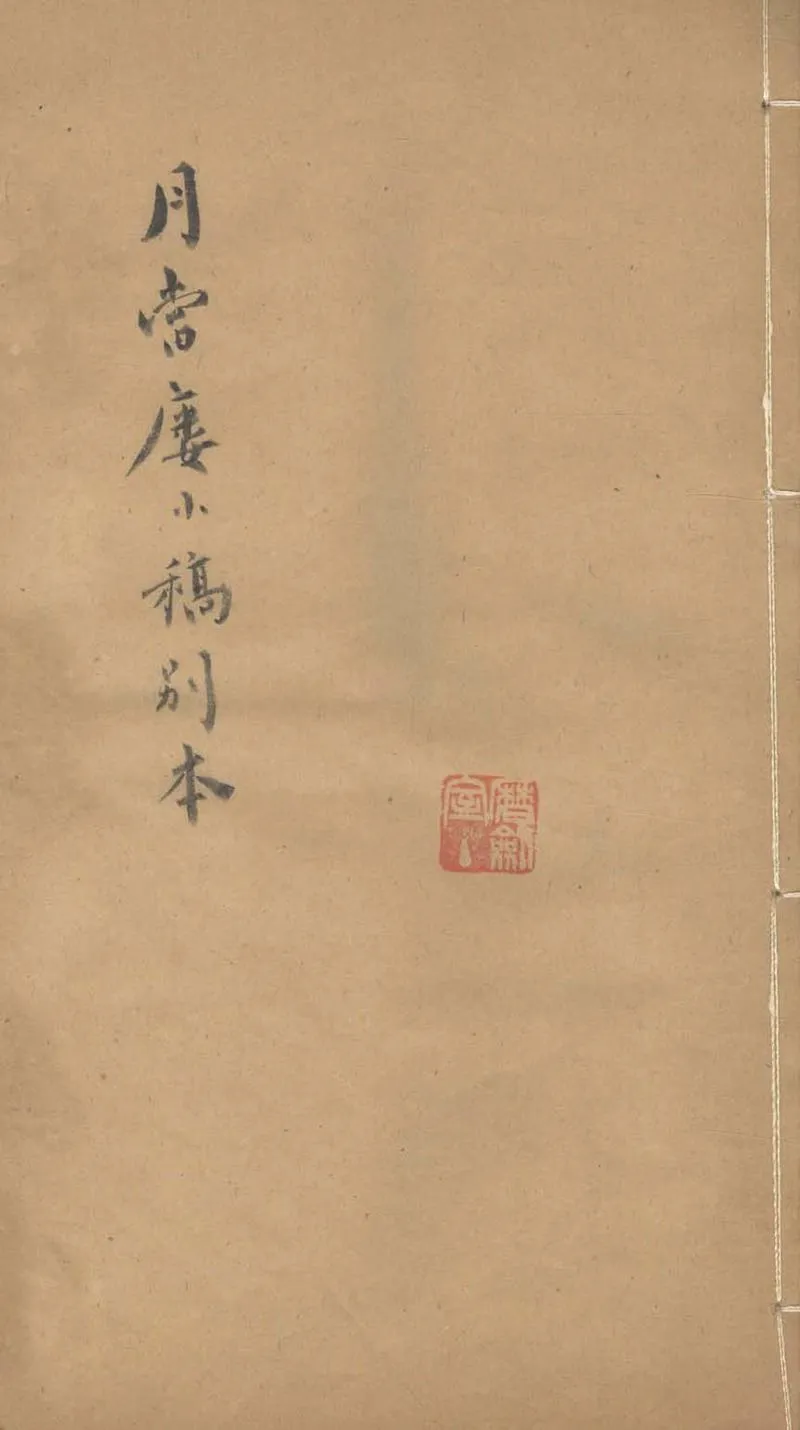 月當廔小稿別本
磨劍室